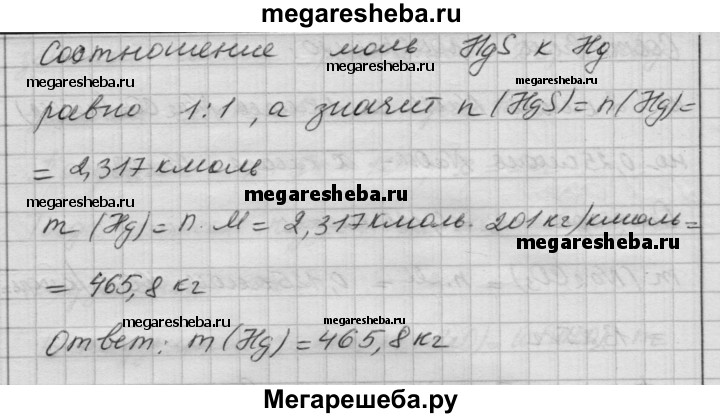 megaresheba.ru
Соотношение моль HgS к Hg
megaresheba.ru megaresheba.ru megaresheba.ru
равно 1:1, а значит n(HgS)=n(Hg)=
= 2,317 кмоль
megaresheba.ru megaresheba.ru
m(Hg)=n·M=2,317кмоль·201кг/кмоль=
megaresheba.ru
= 465,8 кг
megaresheba.ru megaresheba.ru
Ответ: m(Hg)=465,8кг
megaresheba.ru megaresheba.ru
Мегарешеба.ру